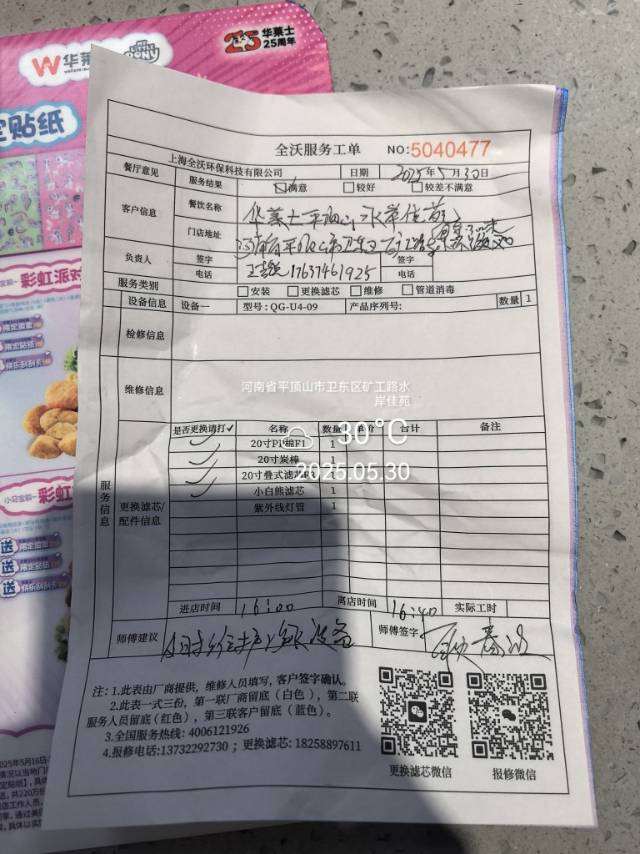 华莱士
25 华莱士
25周年
定贴纸
彩虹派对
小店宝箱
彩虹
送
送
送
全沃服务工单 NO:5040477
上海全沃环保科技有限公司 日期 2025年5月30日
餐厅意见 服务结果 满意 较好 较差不满意
客户信息 餐饮名称 华莱士平顶山水岸佳苑
门店地址 河南省平顶山市卫东区矿工路
负责人 签字 签字
电话 17637461925 电话
服务类别 安装 更换滤芯 维修 管道消毒
设备信息 设备一 型号:QG-U4-09 产品序列号: 数量 1
检修信息
维修信息
河南省平顶山市卫东区矿工路水
岸佳苑
30°C
2025.05.30
服务信息 更换滤芯/配件信息
是否更换请打✓ 名称 数量 单价 合计 备注
✓ 20寸PP棉F1 1
✓ 20寸炭棒 1
✓ 20寸叠式滤芯 1
✓ 小白熊滤芯 1
紫外线灯管 1
进店时间 16:00 离店时间 16:40 实际工时
师傅建议 师傅签字
注:1.此表由厂商提供,维修人员填写,客户签字确认。
2.此表一式三份,第一联厂商留底(白色),第二联
服务人员留底(红色),第三联客户留底(蓝色)。
3.全国服务热线:4006121926
4.报修电话:13732292730;更换滤芯:18258897611
更换滤芯微信 报修微信